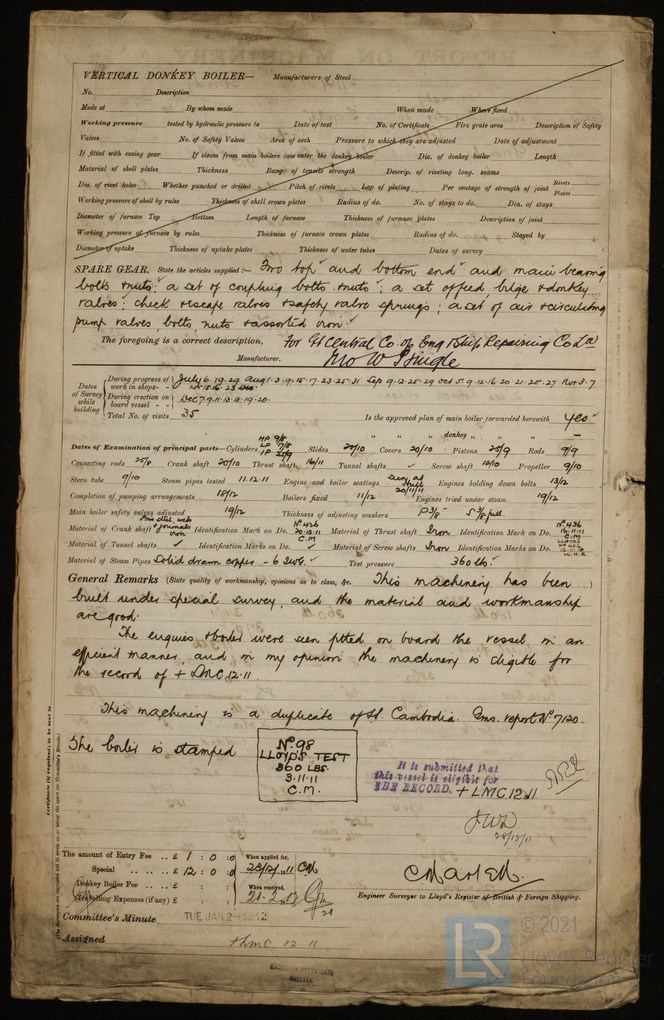 VERTICAL DONKEY BOILER— Manufacturers of Steel
No. Description
Made at By whom made When made Where fixed
Working pressure tested by hydraulic pressure to Date of test No. of Certificate Fire grate area Description of Safety
Valves No. of Safety Valves Area of each Pressure to which they are adjusted Date of adjustment
If fitted with easing gear If steam from main boilers can enter the donkey boiler Dia. of donkey boiler Length
Material of shell plates Thickness Range of tensile strength Descrip. of riveting long. seams
Dia. of rivet holes Whether punched or drilled Pitch of rivets Lap of plating Per centage of strength of joint Rivets Plates
Working pressure of shell by rules Thickness of shell crown plates Radius of do. No. of stays to do. Dia. of stays
Diameter of furnace Top Bottom Length of furnace Thickness of furnace plates Description of joint
Working pressure of furnace by rules Thickness of furnace crown plates Radius of do. Stayed by
Diameter of uptake Thickness of uptake plates Thickness of water tubes Dates of survey
SPARE GEAR. State the articles supplied :— Two top and bottom end and main bearing
bolts & nuts; a set of coupling bolts & nuts; a set of feed bilge & donkey
valves; check & escape valves & safety valve springs; a set of air & circulating
pump valves bolts, nuts & assorted iron
The foregoing is a correct description, For Gt Central Co op Eng & Ship Repairing Co Ld
Manufacturer.
Dates of Survey while building
During progress of work in shops - - July 6.19.29 Aug 1.3.9.15.17.23.25.31 Sep 9.12.25.29 Oct 5.9.12.16.20.21.25.27 Nov 3.7
During erection on board vessel - - - Dec 7.9.11.13.15.19.20.
Total No. of visits 35 Is the approved plan of main boiler forwarded herewith Yes
" " " donkey " " " –
Dates of Examination of principal parts—Cylinders HP 9/8 LP 17/8 IP 25/9 Slides 20/10 Covers 20/10 Pistons 25/9 Rods 9/9
Connecting rods 25/8 Crank shaft 20/10 Thrust shaft 16/11 Tunnel shafts ✓ Screw shaft 12/10 Propeller 9/10
Stern tube 9/10 Steam pipes tested 11.12.11 Engine and boiler seatings 20/11/11 Engines holding down bolts 13/12
Completion of pumping arrangements 18/12 Boilers fixed 11/12 Engines tried under steam 19/12
Main boiler safety valves adjusted 19/12 Thickness of adjusting washers P 3/8 S 3/8 full.
Material of Crank shaft Iron steel webs & journals iron Identification Mark on Do. No 426 20.10.11 C.M Material of Thrust shaft Iron Identification Mark on Do. No 436 16.11.11 C.M
Material of Tunnel shafts ✓ Identification Marks on Do. ✓ Material of Screw shafts Iron Identification Marks on Do. LLOYDS 12.11.10 W.H.R.
Material of Steam Pipes Solid drawn copper - 6 SWG. Test pressure 360 lbs.
General Remarks (State quality of workmanship, opinions as to class, &c. This machinery has been
built under special survey, and the material and workmanship
are good.
The engines & boiler were seen fitted on board the vessel, in an
efficient manner, and in my opinion the machinery is eligible for
the record of + LMC 12.11.
This machinery is a duplicate of St. Cambodia. Gms. report No 7120.
The boiler is stamped
No 98
LLOYD'S TEST
360 LBS.
3.11.11
C.M.
It is submitted that
this vessel is eligible for
THE RECORD. + LMC 12.11
JWD
28/12/11
Certificate (if required) to be sent to
The amount of Entry Fee .. £ 1 : 0 : 0 When applied for,
Special .. .. £ 12 : 0 : 0 28/12/11 CM
Donkey Boiler Fee .. .. £ : : When received,
Travelling Expenses (if any) £ : :
Engineer Surveyor to Lloyd's Register of British & Foreign Shipping.
Committee's Minute TUE JAN 2-1912
Assigned + LMC 12.11
LR
© 2021
Lloyd's Register
Foundation